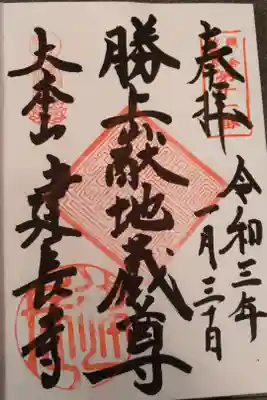 奉拝
令和三年
一月三十日
勝上嶽地蔵尊
大本山
建長寺